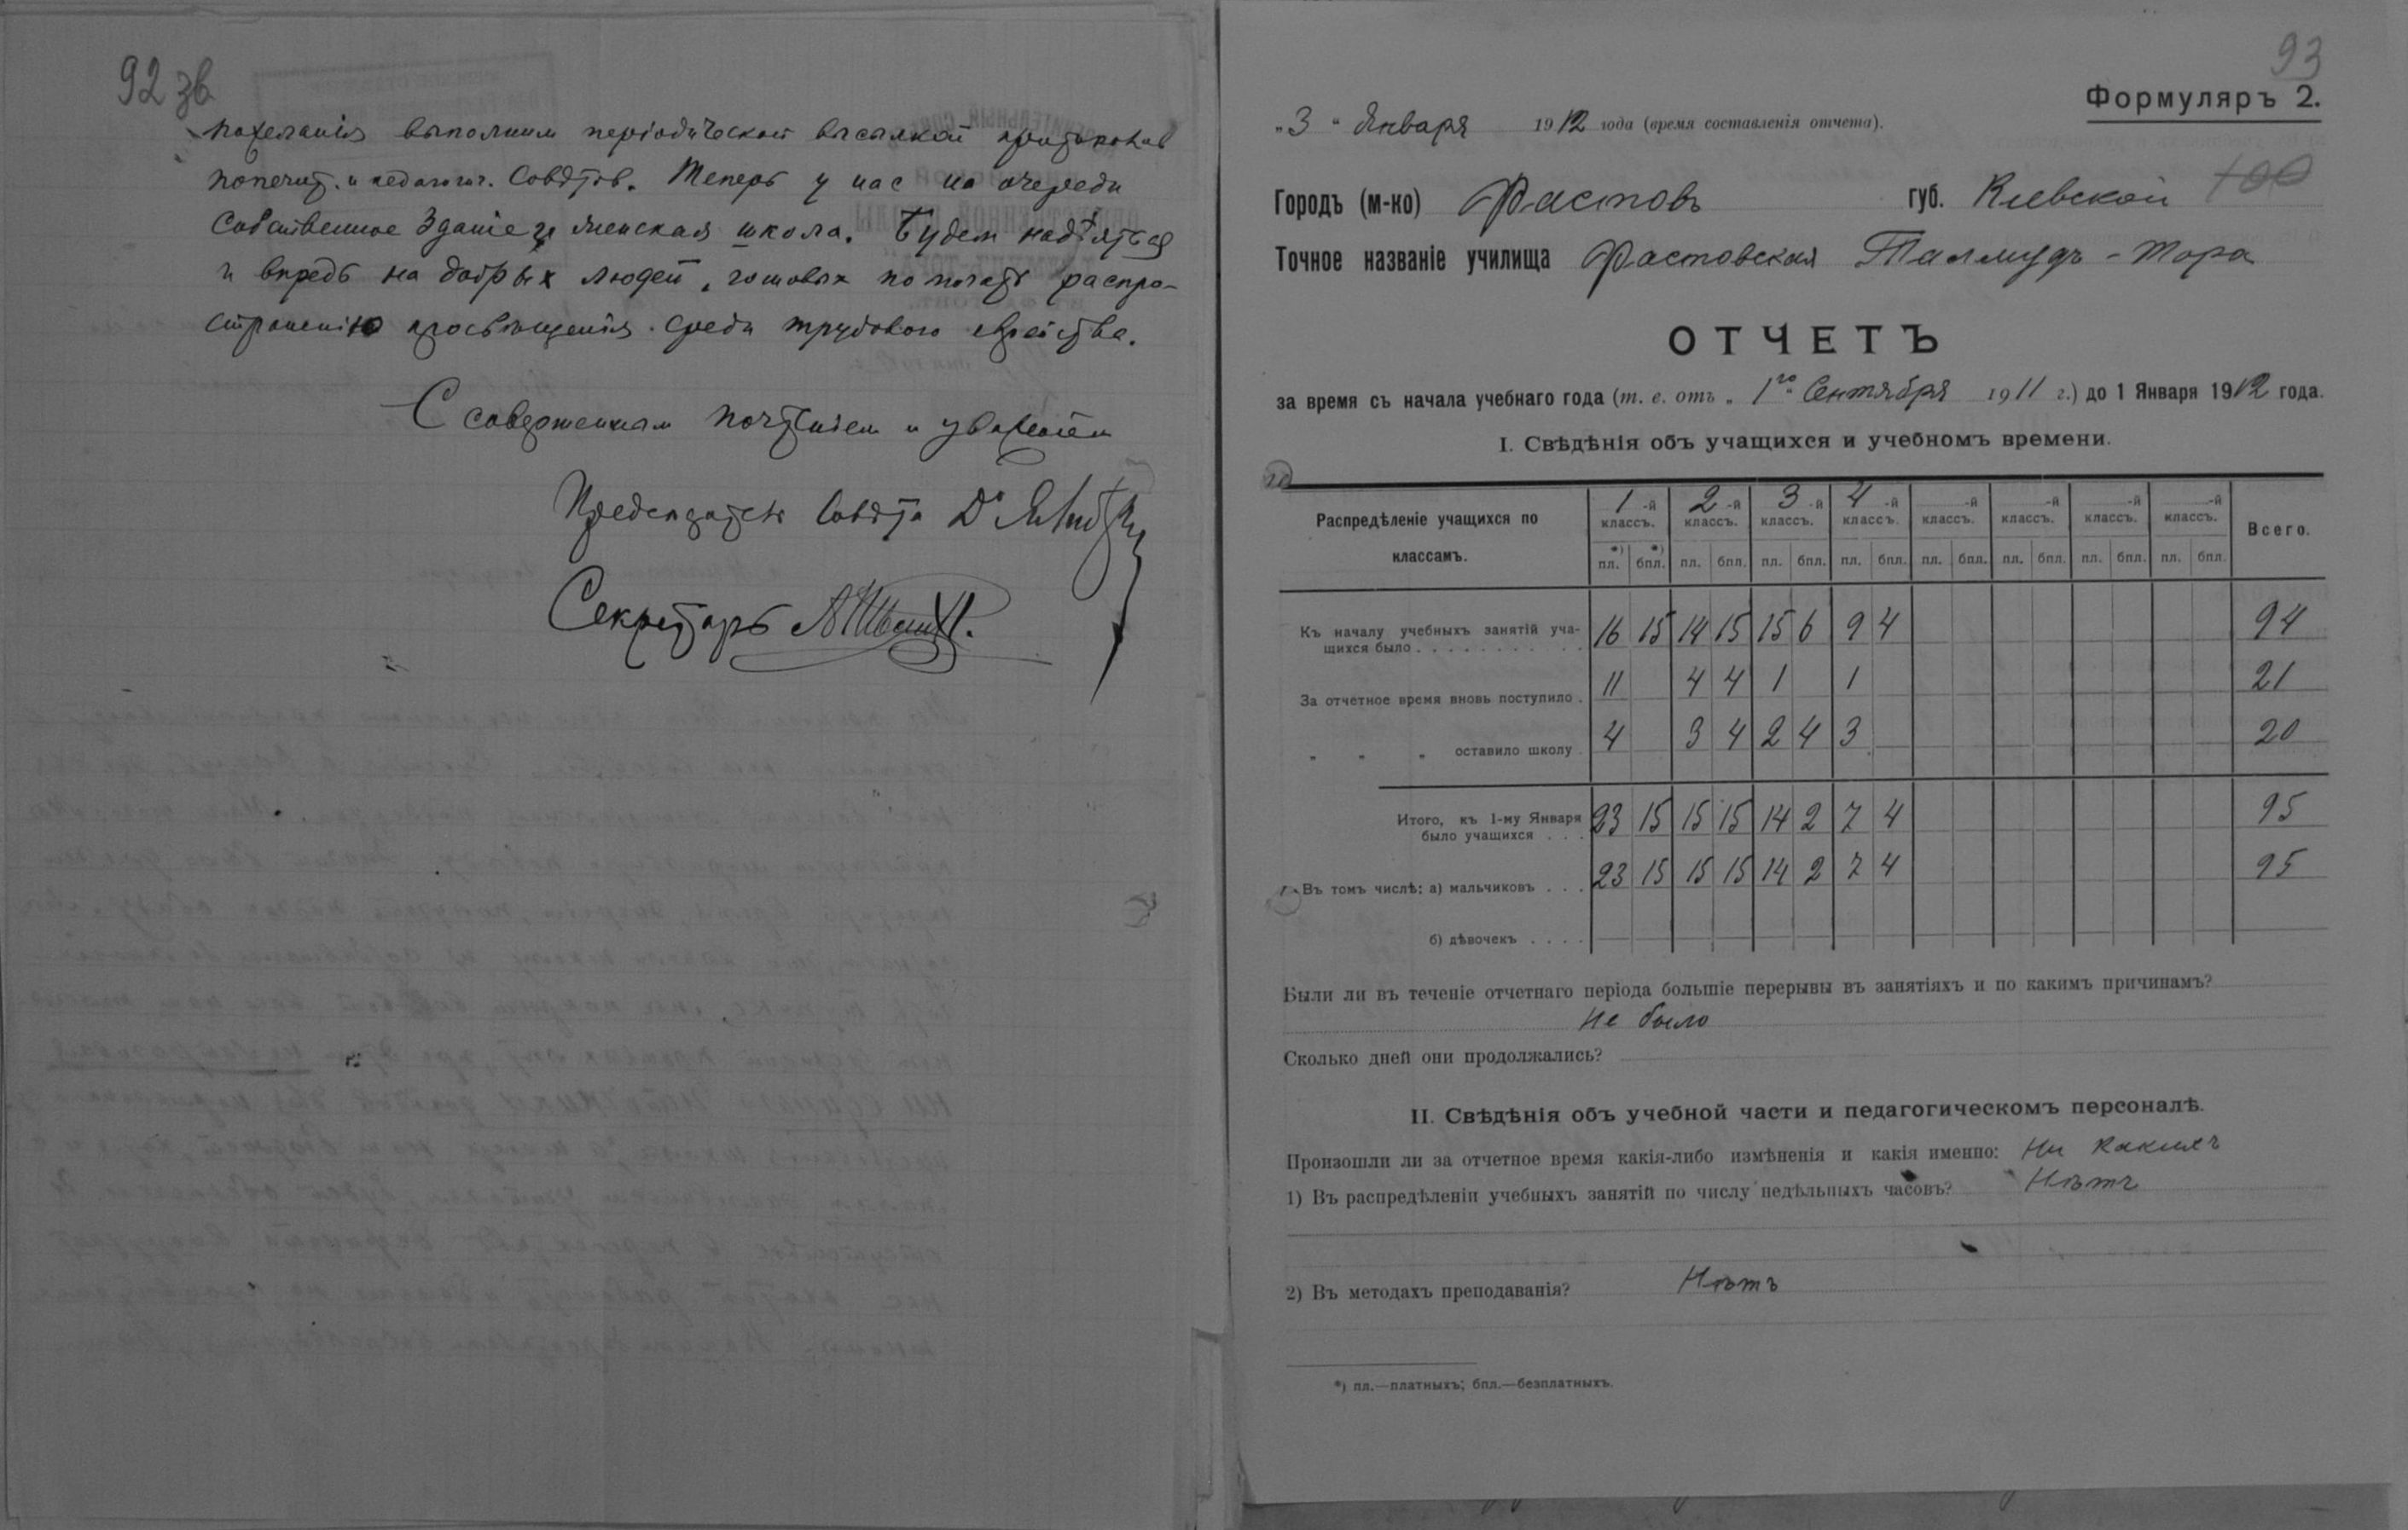 92 зв
пожеланія выполним періодической высылкой протоколов
попечит. и педагогич. Совѣтов. Теперь у нас на очереди
собственное зданіе и женская школа. Будем надѣяться
и впредь на добрых людей, готовых помогать распро-
страненію просвѣщенія среди трудового еврейства.
С совершенным почтеніем и уваженіем
Председатель Совѣта Dr
Секретарь
93
Формуляръ 2.
„3“ Января 1912 года (время составленія отчета).
Городъ (м-ко) Фастовъ губ. Кіевской 100
Точное названіе училища Фастовская Талмудъ-Тора
ОТЧЕТЪ
за время съ начала учебнаго года (т. е. отъ „1го“ Сентября 1911 г.) до 1 Января 1912 года.
I. Свѣдѣнія объ учащихся и учебномъ времени.
Распредѣленіе учащихся по классамъ. 1-й классъ. 2-й классъ. 3-й классъ. 4-й классъ. -й классъ. -й классъ. -й классъ. -й классъ. Всего.
*) пл. *) бпл. пл. бпл. пл. бпл. пл. бпл. пл. бпл. пл. бпл. пл. бпл. пл. бпл.
Къ началу учебныхъ занятій уча-
щихся было . . . . . . . . . . 16 15 14 15 15 6 9 4 94
За отчетное время вновь поступило . 11 4 4 1 1 21
„ „ „ оставило школу . 4 3 4 2 4 3 20
Итого, къ 1-му Января
было учащихся . . . 23 15 15 15 14 2 7 4 95
Въ томъ числѣ: а) мальчиковъ . . . 23 15 15 15 14 2 7 4 95
б) дѣвочекъ . . . .
Были ли въ теченіе отчетнаго періода большіе перерывы въ занятіяхъ и по какимъ причинамъ?
Не было
Сколько дней они продолжались?
II. Свѣдѣнія объ учебной части и педагогическомъ персоналѣ.
Произошли ли за отчетное время какія-либо измѣненія и какія именно: Ни какихъ
1) Въ распредѣленіи учебныхъ занятій по числу недѣльныхъ часовъ? Нѣтъ
2) Въ методахъ преподаванія? Нѣтъ
*) пл.—платныхъ; бпл.—безплатныхъ.